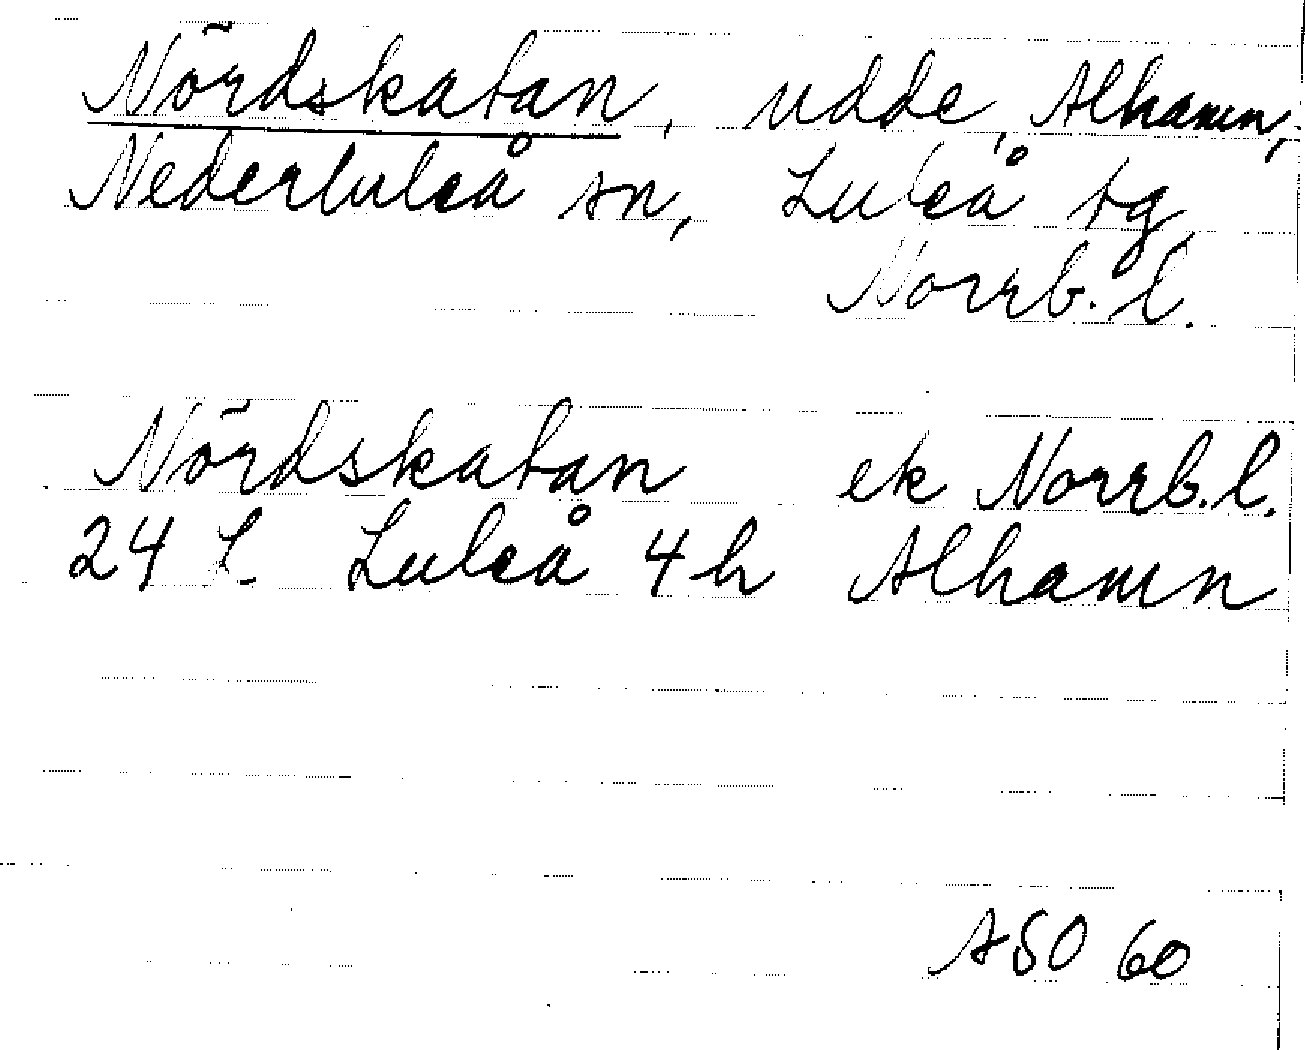 Nõrdskatan, udde, Alhamn,
Nederluleå sn, Luleå tg,
Norrb. l.
Nõrdskatan ek Norrb. l.
24 L. Luleå 4 h Alhamn
ASO 60